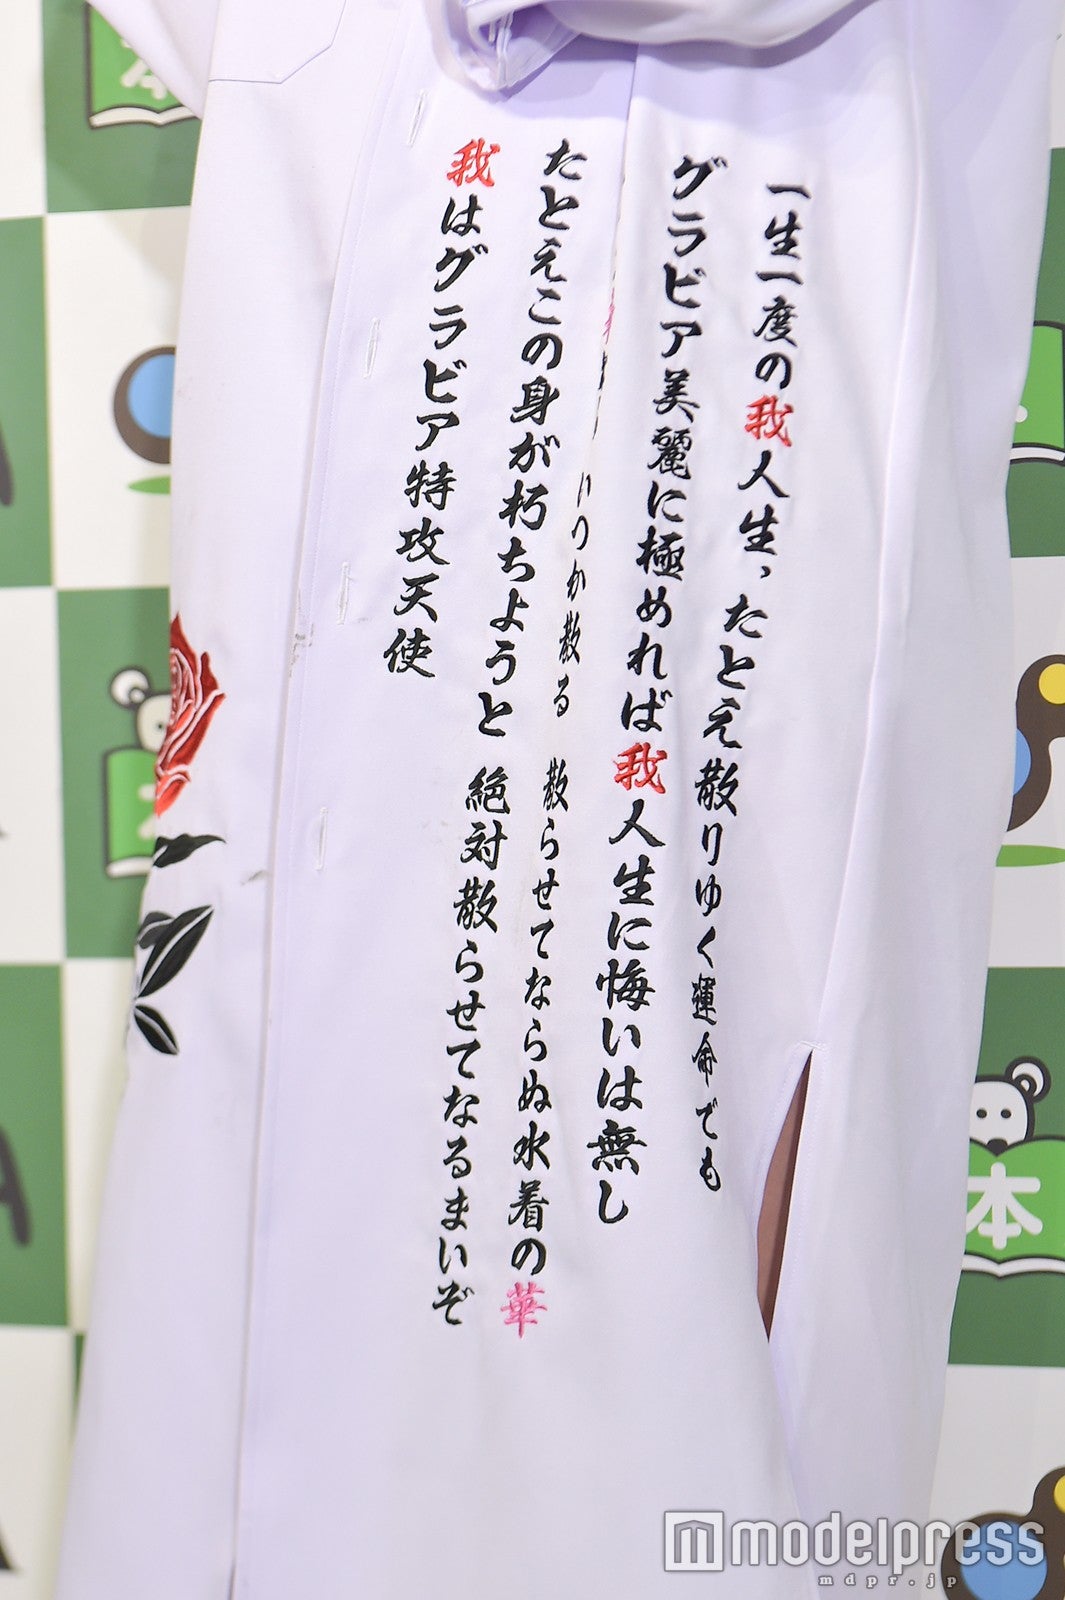 一生一度の我人生、たとえ散りゆく運命でも
グラビア美麗に極めれば我人生に悔いは無し
いつか散る 散らせてならぬ水着の華
たとえこの身が朽ちようと 絶対散らせてなるまいぞ
我はグラビア特攻天使
本
本
modelpress
mdpr.jp